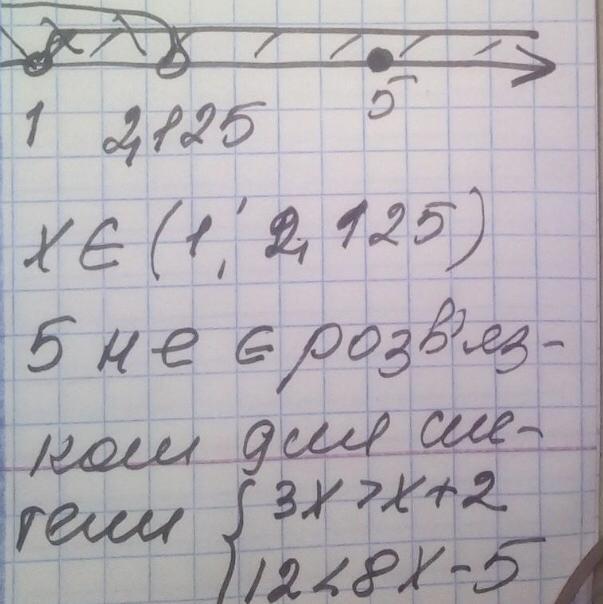 1 2,125 5
x ∈ (1; 2,125)
5 не є розв'яз-
ком для сис-
теми { 3x > x + 2
12 < 8x - 5